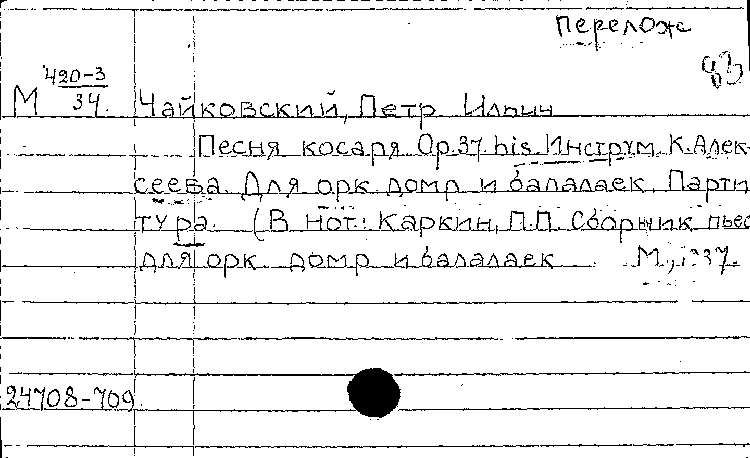 Перелож
83
М 420-3/34. Чайковский, Петр Ильич
Песня косаря Ор.37 bis Инструм. К. Алек-
сеева. Для орк домр и балалаек. Парти
тура. (В нот: Каркин, П.П. Сборник пьес
для орк домр и балалаек М., 1937.
24708-709